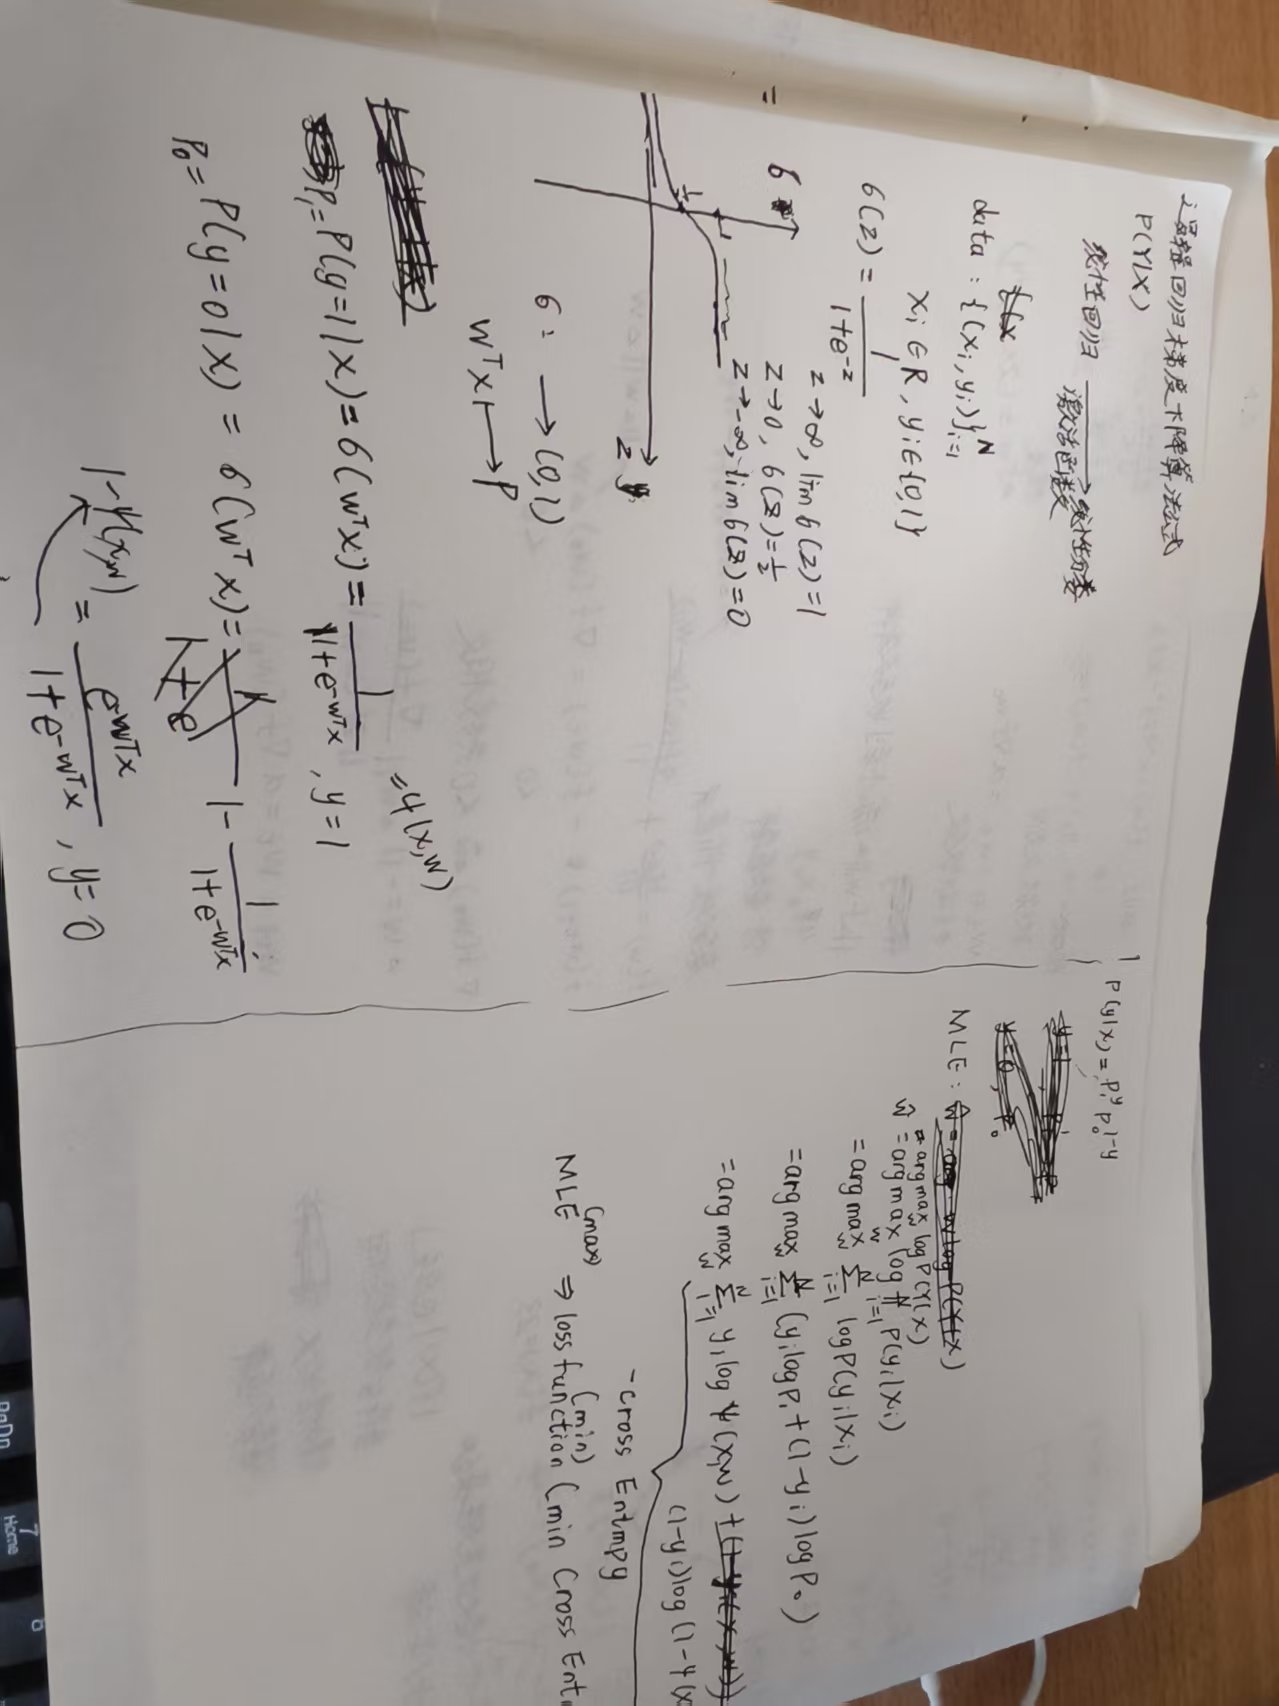 逻辑回归梯度下降算法公式
P(Y|X)
线性回归 ⟶ 线性分类
激活函数
data : {(xᵢ, yᵢ)}ᵢ₌₁ᴺ
xᵢ ∈ R, yᵢ ∈ {0,1}
σ(z) = 1/(1+e^-z)
z→∞, lim σ(z) = 1
z→0, σ(z) = 1/2
z→-∞, lim σ(z) = 0
=
σ
1
1/2
z
σ: ⟶ (0,1)
wᵀx ⟼ p
P₁ = P(y=1|x) = σ(wᵀx) = 1/(1+e^-wᵀx), y=1
= φ(x,w)
P₀ = P(y=0|x) = σ(wᵀx) = 1 - 1/(1+e^-wᵀx)
1-φ(x,w) = e^-wᵀx/(1+e^-wᵀx), y=0
P(y|x) = P₁^y P₀^1-y
MLE:
= argmax_w log P(Y|X)
ŵ = argmax_w log π_i=1^N P(yᵢ|xᵢ)
= argmax_w Σ_i=1^N log P(yᵢ|xᵢ)
= argmax_w Σ_i=1^N (yᵢ log P₁ + (1-yᵢ) log P₀)
= argmax_w Σ_i=1^N yᵢ log φ(x,w) +
(1-yᵢ) log (1-φ(x
-cross Entropy
MLE (max) ⇒ loss function (min) (min Cross Ent
PgDn
7
Home
8